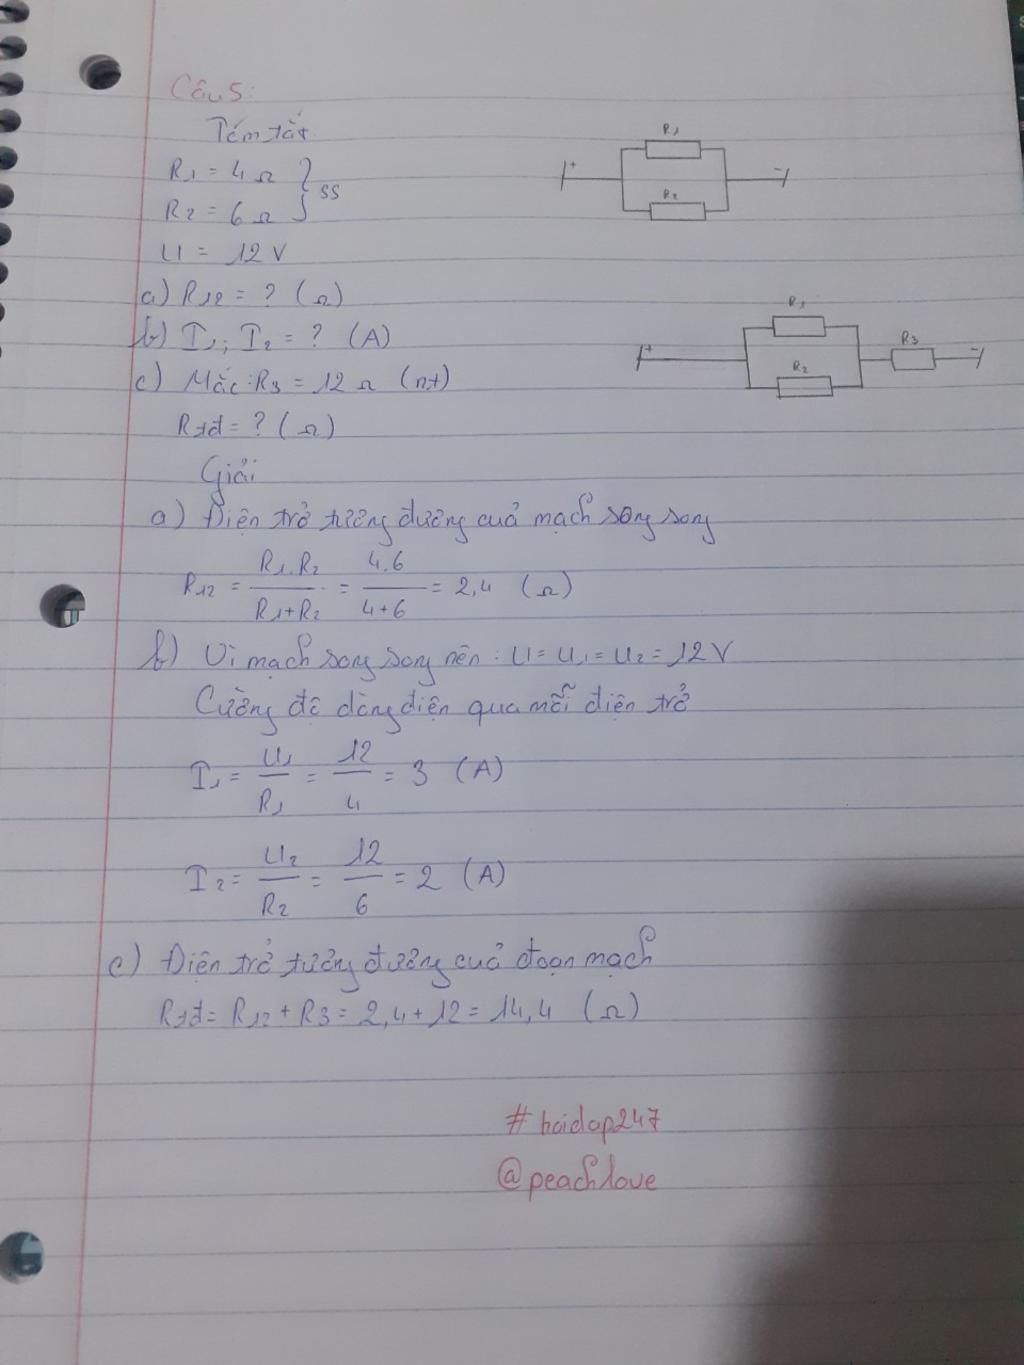 Câu 5:
Tóm tắt
R1 = 4 Ω
R2 = 6 Ω } SS
U = 12 V
a) R12 = ? (Ω)
b) I1; I2 = ? (A)
c) Mắc: R3 = 12 Ω (nt)
Rtđ = ? (Ω)
R1
+ -
R2
R1
+ R3 -
R2
Giải
a) Điện trở tương đương của mạch song song
R12 = R1.R2 / R1+R2 = 4.6 / 4+6 = 2,4 (Ω)
b) Vì mạch song song nên: U = U1 = U2 = 12 V
Cường độ dòng điện qua mỗi điện trở
I1 = U1 / R1 = 12 / 4 = 3 (A)
I2 = U2 / R2 = 12 / 6 = 2 (A)
c) Điện trở tương đương của đoạn mạch
Rtđ = R12 + R3 = 2,4 + 12 = 14,4 (Ω)
#hoidap247
@peachlove